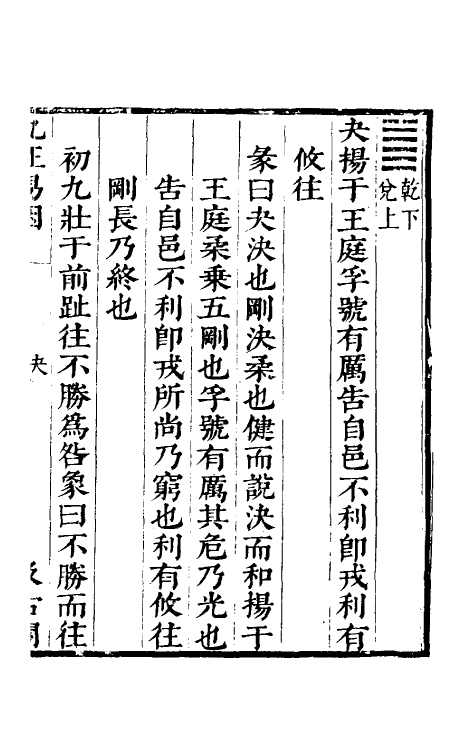 乾下
兌上
夬揚于王庭孚號有厲告自邑不利卽戎利有
攸往
彖曰夬決也剛決柔也健而說決而和揚于
王庭柔乗五剛也孚號有厲其危乃光也
告自邑不利卽戎所尚乃窮也利有攸往
剛長乃終也
初九壯于前趾往不勝爲咎象曰不勝而往
夬